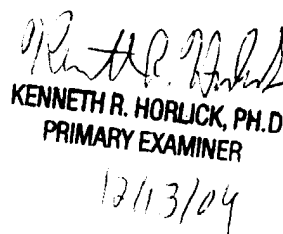 Kenneth R. Horlick
KENNETH R. HORLICK, PH.D
PRIMARY EXAMINER
12/13/04